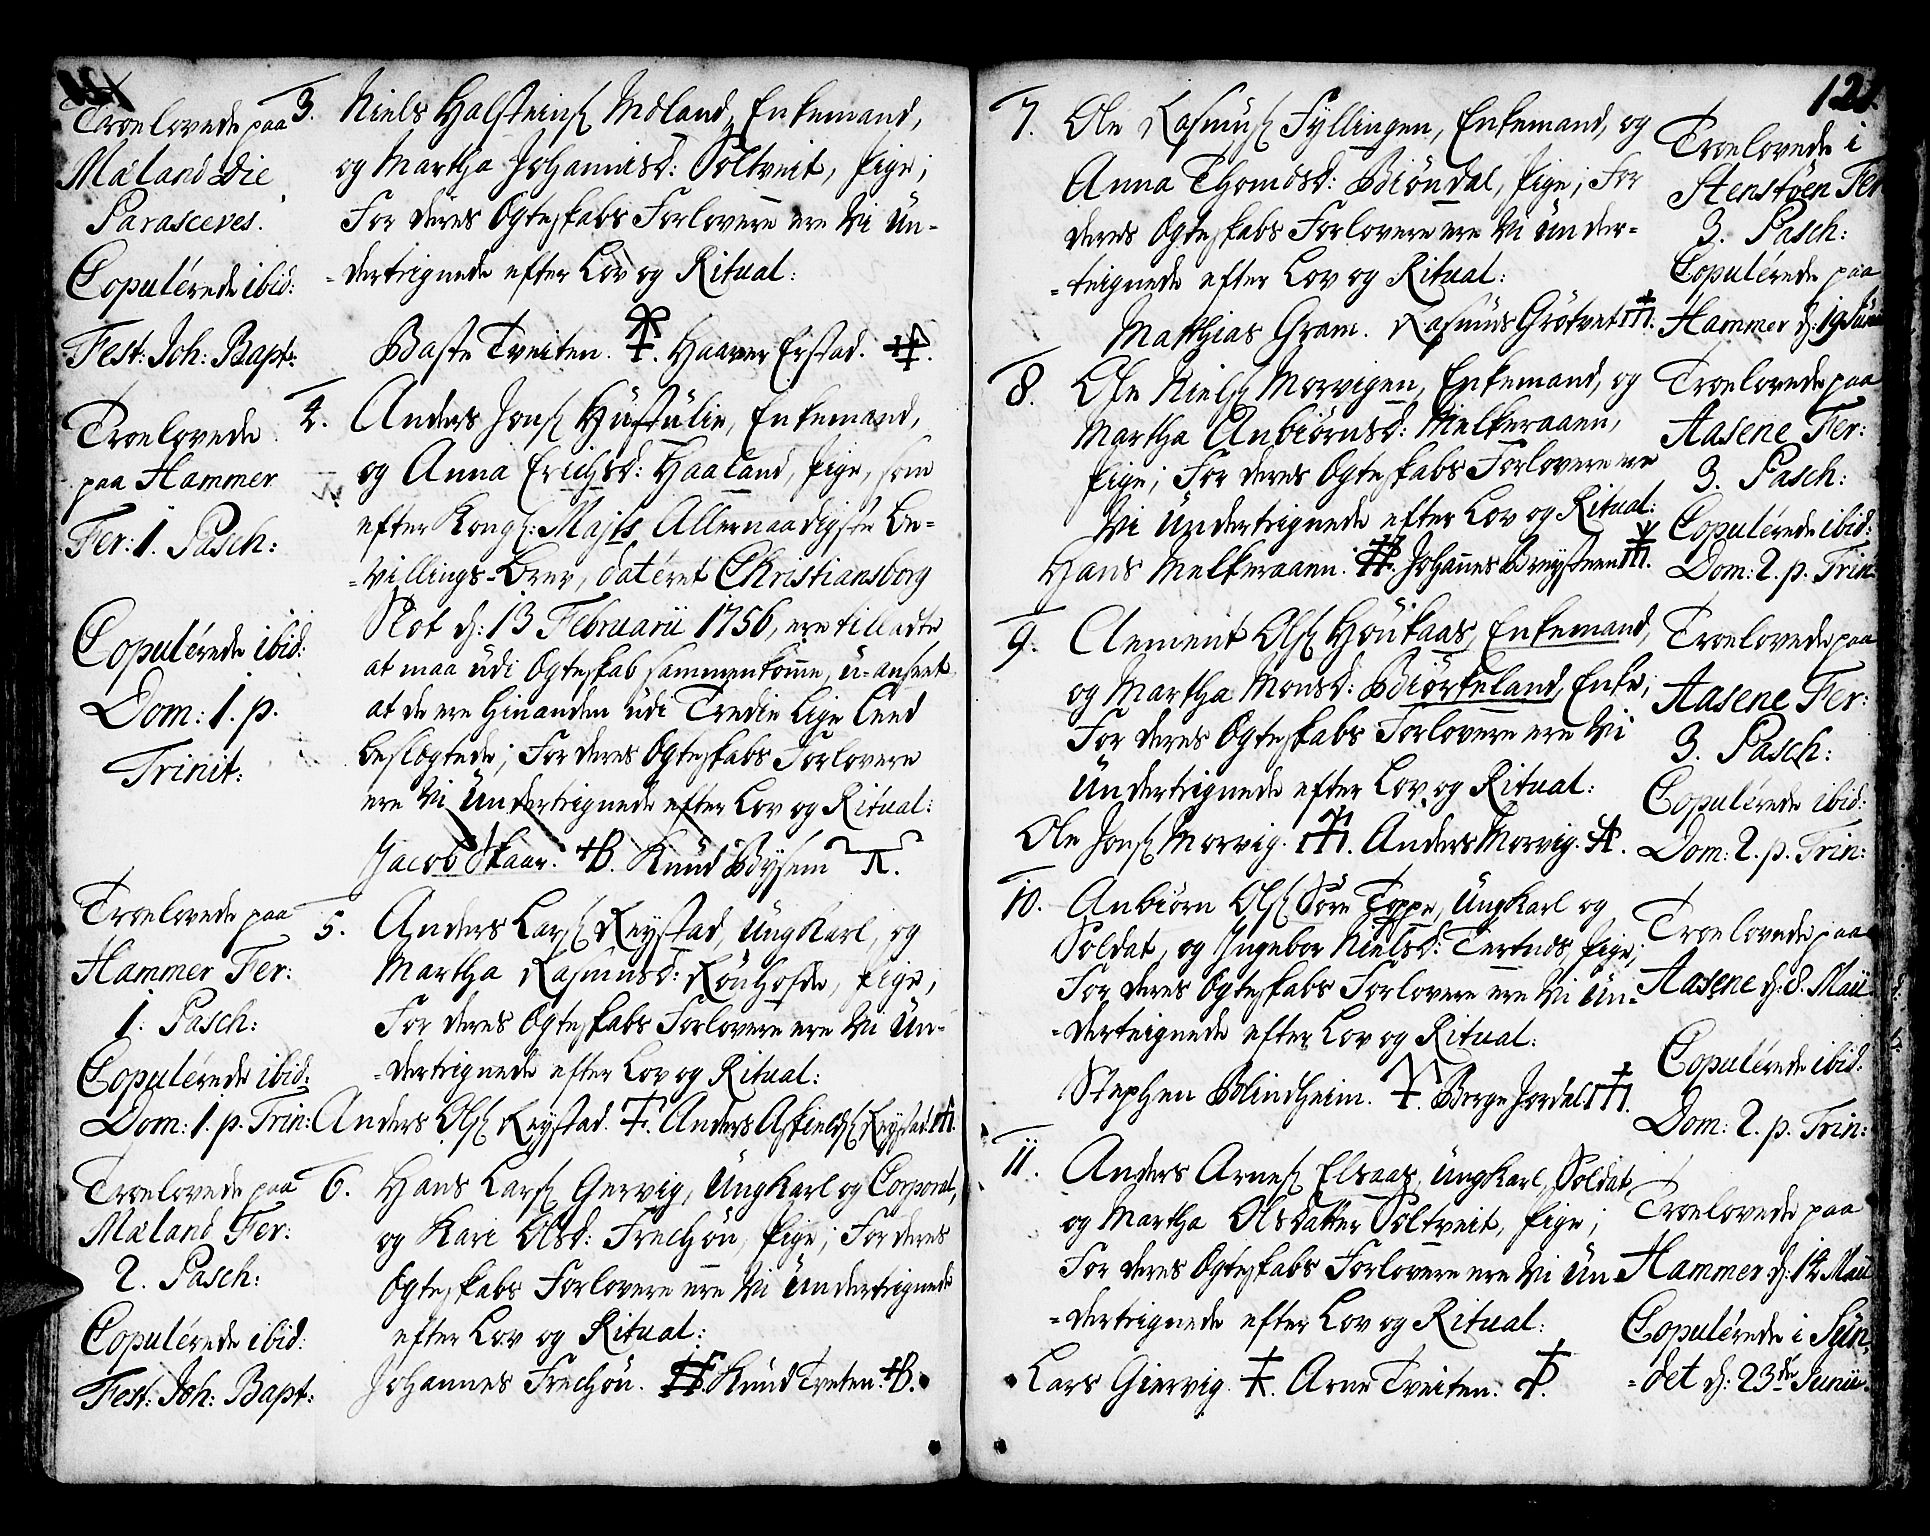 Troelovede paa
Mæland Die
Parasceves.
Copulérede ibid:
Fest: Joh: Bapt:
3. Niels Halsteins. Mæland, Enkemand,
og Martha Johannisd: Soltveit, Pige;
For deres Ægteskabs Forlovere ere Vi Un-
-dertegnede efter Lov og Ritual:
Baste Tveiten. Haaver Erstad.
Troelovede
paa Hammer
Fer: 1. Pasch:
Copulérede ibid:
Dom: 1. p.
Trinit:
4. Anders Jons. Hustulie, Enkemand,
og Anna Erichsd: Haaland, Pige, som
efter Kongl: Majts Allernaadigste Be-
-villings-Brev, datéret Christiansborg
Slot d: 13 Februarii 1756, ere tilladte
at maa udi Ægteskab sammenkomme, u-anseet
at de ere hinanden udi Tredie Lige Leed
beslægtede; For deres Ægteskabs Forlovere
ere Vi Undertegnede efter Lov og Ritual:
Jacob Skaar. HB. Knud Bysem
Troelovede paa
Hammer Fer:
1. Pasch:
Copulérede ibid:
Dom: 1. p. Trin:
5. Anders Lars. Reystad, UngKarl, og
Martha Rasmusd: Rønhofde, Pige;
For deres Ægteskabs Forlovere ere Vi Un-
-dertegnede efter Lov og Ritual:
Anders Ols. Reystad. Anders Askields. Reystad.
Troelovede paa
Mæland Fer:
2. Pasch:
Copulérede ibid:
Fest: Joh: Bapt:
6. Hans Lars. Gervig, UngKarl og Corporal,
og Kari Olsd: Frechøu, Pige; For deres
Ægteskabs Forlovere ere Vi Undertegnede
efter Lov og Ritual:
Johannes Frechøu. Knud Tveten. HB.
121.
7. Ole Rasmus. Fyllingen, Enkemand, og
Anna Thomæsd: Biøndal, Pige; For
deres Ægteskabs Forlovere ere Vi Under-
-tegnede efter Lov og Ritual:
Matthias Gram. Rasmus Grøtvet
Troelovede i
Stenstøen Fer
3. Pasch:
Copulérede paa
Hammer d: 19 Junii
8. Ole Niels. Morvigen, Enkemand, og
Martha Anbiørnsd: Melkeraaen,
Pige; For deres Ægteskabs Forlovere ere
Vi Undertegnede efter Lov og Ritual:
Hans Melkeraaen. Johannes Breysteen
Troelovede paa
Aasene Fer:
3. Pasch:
Copulérede ibid:
Dom: 2. p. Trin:
9. Clement Ols. Høukaas, Enkemand,
og Martha Monsd: Biørkeland, Enke;
For deres Ægteskabs Forlovere ere Vi
Undertegnede efter Lov og Ritual:
Ole Jons. Morvig. Anders Morvig.
Troelovede paa
Aasene Fer:
3. Pasch:
Copulérede ibid:
Dom: 2. p. Trin:
10. Anbiørn Ols. Søre Toppe, UngKarl og
Soldat, og Ingebor Nielsd: Tertnes, Pige;
For deres Ægteskabs Forlovere ere Vi Un-
-dertegnede efter Lov og Ritual:
Stephen Blindheim. Berge Jordal
Troelovede paa
Aasene d: 8. Maii
Copulérede ibid:
Dom: 2. p. Trin:
11. Anders Arnes. Elsaas, UngKarl, Soldat,
og Martha Olsdatter Soltveit, Pige;
For deres Ægteskabs Forlovere ere Vi Un
-dertegnede efter Lov og Ritual:
Lars Giervig. Arne Tveiten.
Troelovede paa
Hammer d: 12 Maii
Copulérede i Sun-
-det d: 23de Junii.